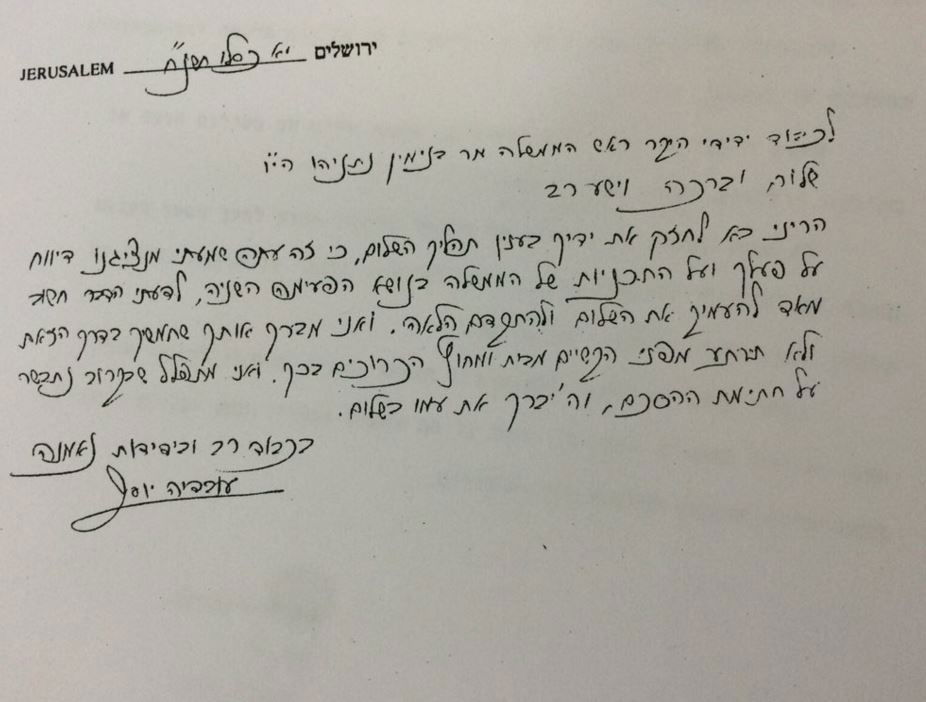 ירושלים יא כסלו תשנ"ח JERUSALEM
לכבוד ידידי היקר ראש הממשלה מר בנימין נתניהו הי"ו
שלום, וברכה וישע רב
הריני בא לחזק את ידיך בענין תהליך השלום, כי זה עתה שמעתי מנציגנו דיווח
על פעלך ועל התכניות של הממשלה בנושא הפעימה השניה, לדעתי הדבר חשוב
מאד להעמיק את השלום ולהתקדם הלאה. ואני מברך אותך שתמשיך בדרך הזאת
ולא תירתע מפני הקשיים מבית ומחוץ הכרוכים בכך. ואני מתפלל שבקרוב נתבשר
על חתימת ההסכם, וה' יברך את עמו בשלום.
בכבוד רב ובידידות נאמנה
עובדיה יוסף